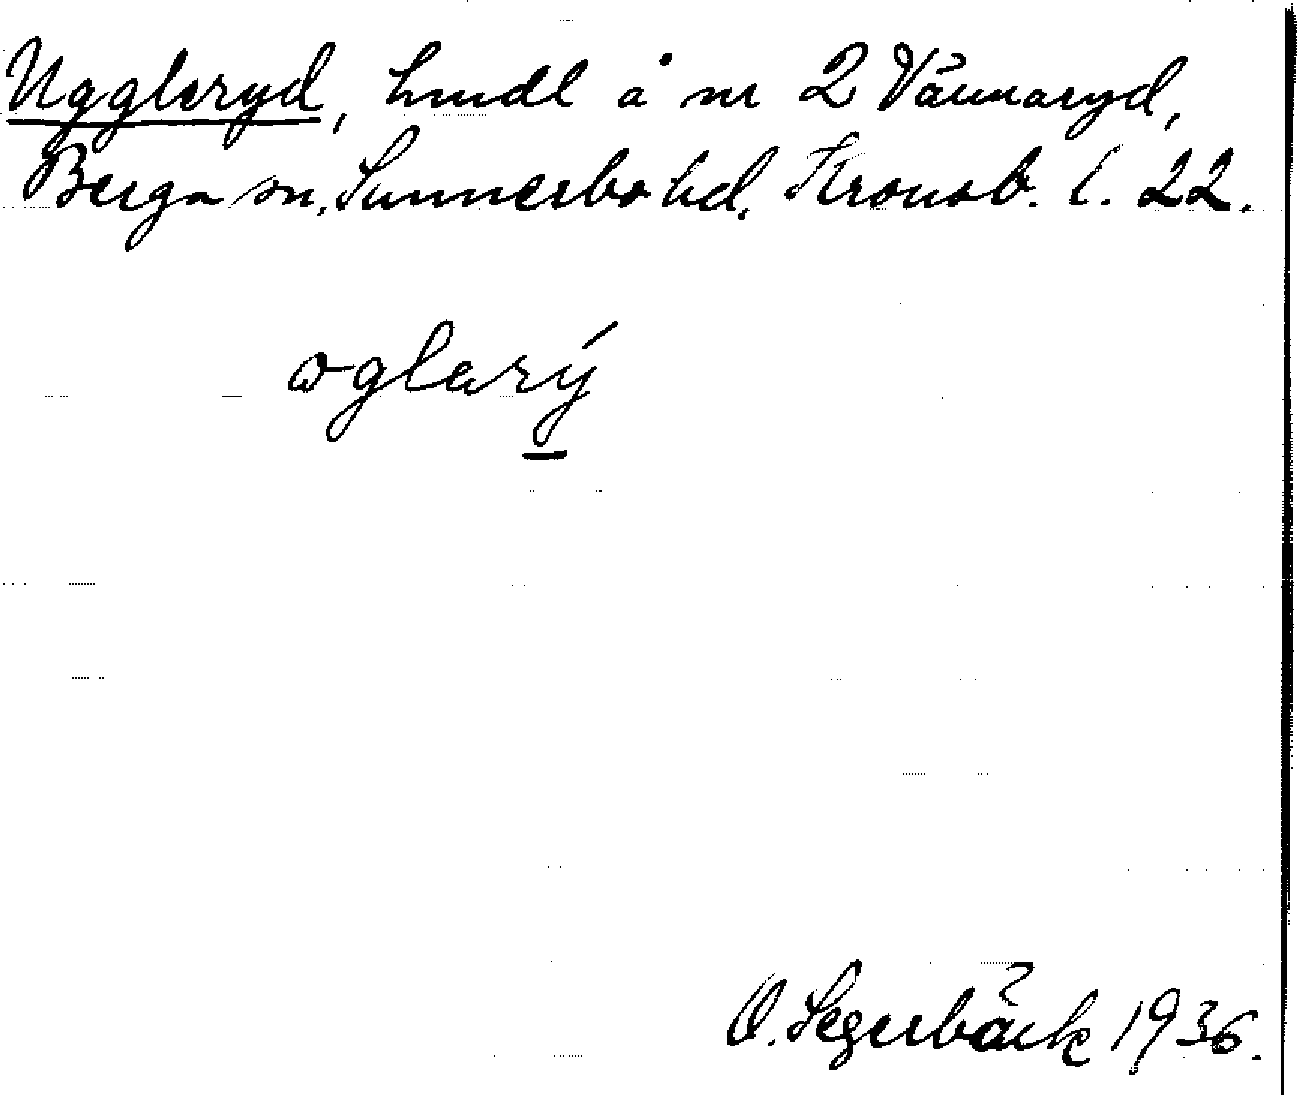 Uggleryd, hmdl å nr 2 Vännaryd,
Berga sn, Sunnerbo hd, Kronob. l. 22.
ωglarý
O. Segerbäck 1936.